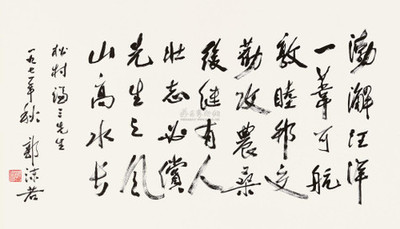 渤澥汪洋
一葦可航
敦睦邦交
勸攻農桑
後继有人
壮志必償
先生之风
山高水长
松村谦三先生
一九七一年秋 郭沫若